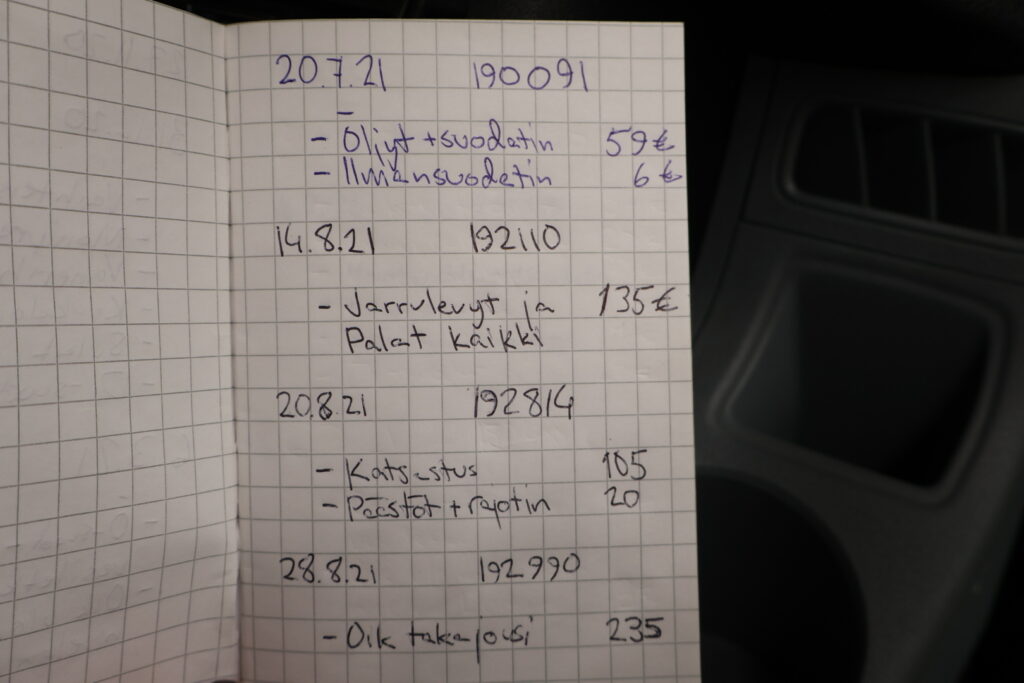 20.7.21 190091
- Öljyt + suodatin 59€
- Ilmansuodatin 6€
14.8.21 192110
- Jarrulevyt ja 135€
Palat kaikki
20.8.21 192814
- Katsastus 105
- Päästöt + rajotin 20
28.8.21 192990
- Oik takajousi 235